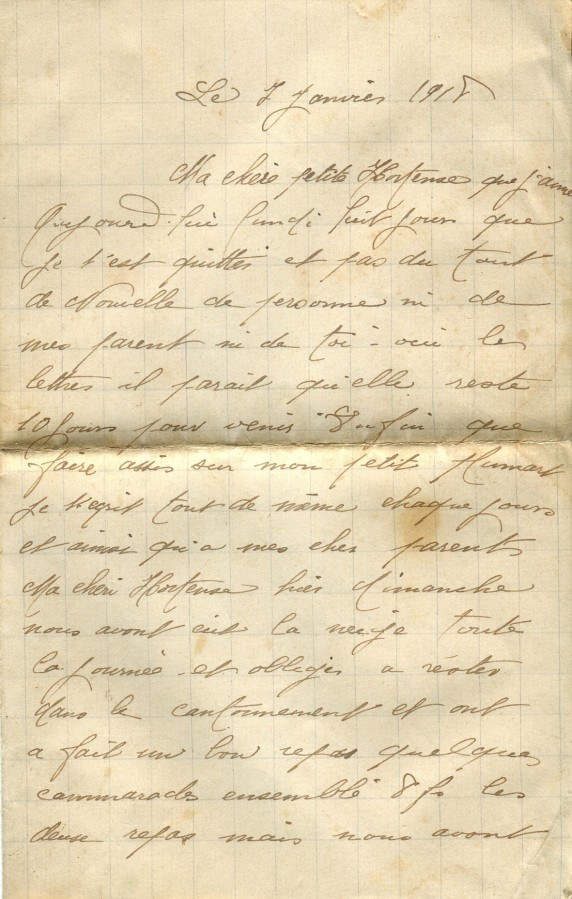 Le 7 Janvier 1918
Ma chère petite Hortense que j'aime
Aujourd'hui lundi huit jours que
je t'est quittés et pas du tout
de Nouvelle de personne ni de
mes parent ni de toi - oui les
lettres il parait qu'elle reste
10 jours pour venir Enfin que
faire assis sur mon petit
je t'egrit tout de même chaque jours
et ainsi qu'a mes cher parents
Ma chéri Hortense hier dimanche
nous avont eut la neige toute
la journée - et obligés a réster
dans le cantonnement et ont
a fait un bon repas quelques
cammarades ensemble 8 fr les
deuse repas mais nous avont